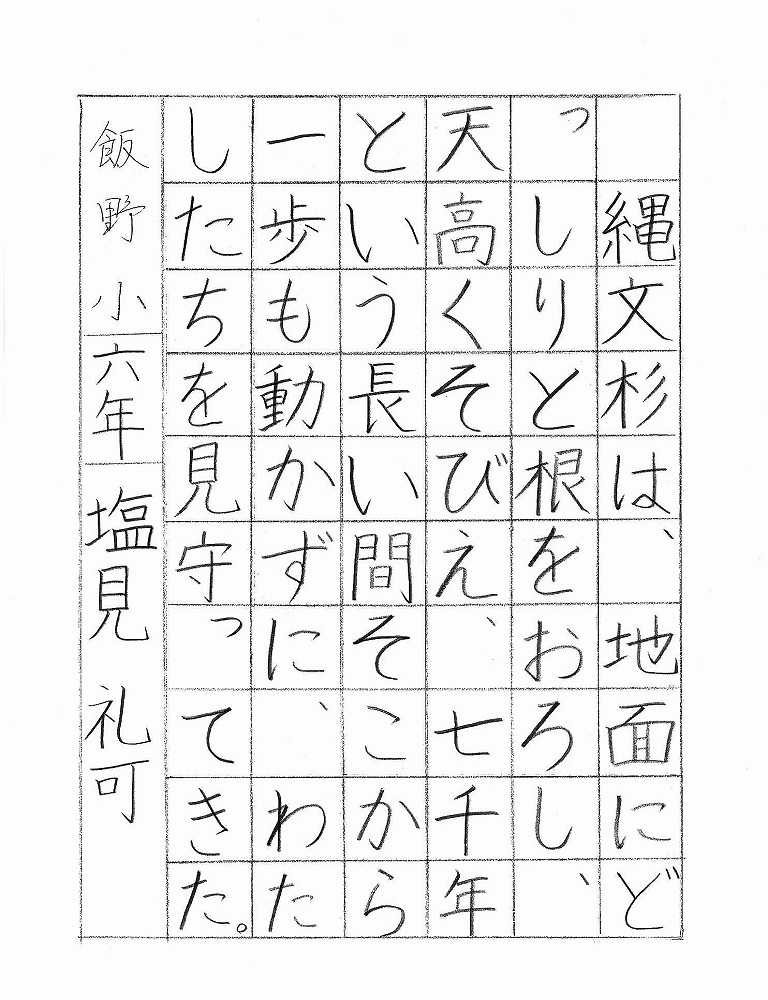 縄文杉は、地面にど
っしりと根をおろし、
天高くそびえ、七千年
という長い間そこから
一歩も動かずに、わた
したちを見守ってきた。
飯野小六年塩見礼可